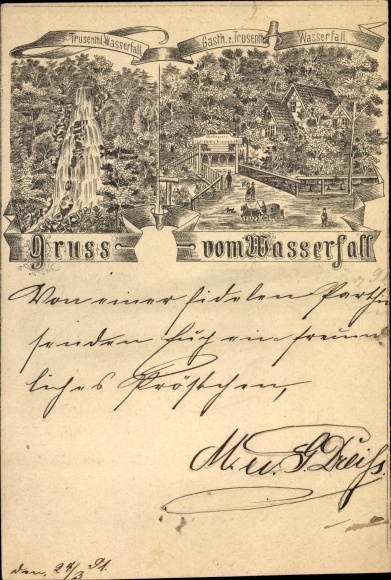 Trusenthl-Wasserfall.
Gasth. z. Trusenthl. Wasserfall.
Gruss vom Wasserfall
Von einer fidelen Parthie
senden Euch ein freund-
liches Pröstchen,
M. u. G. Dreiss.
den, 28/3 91.